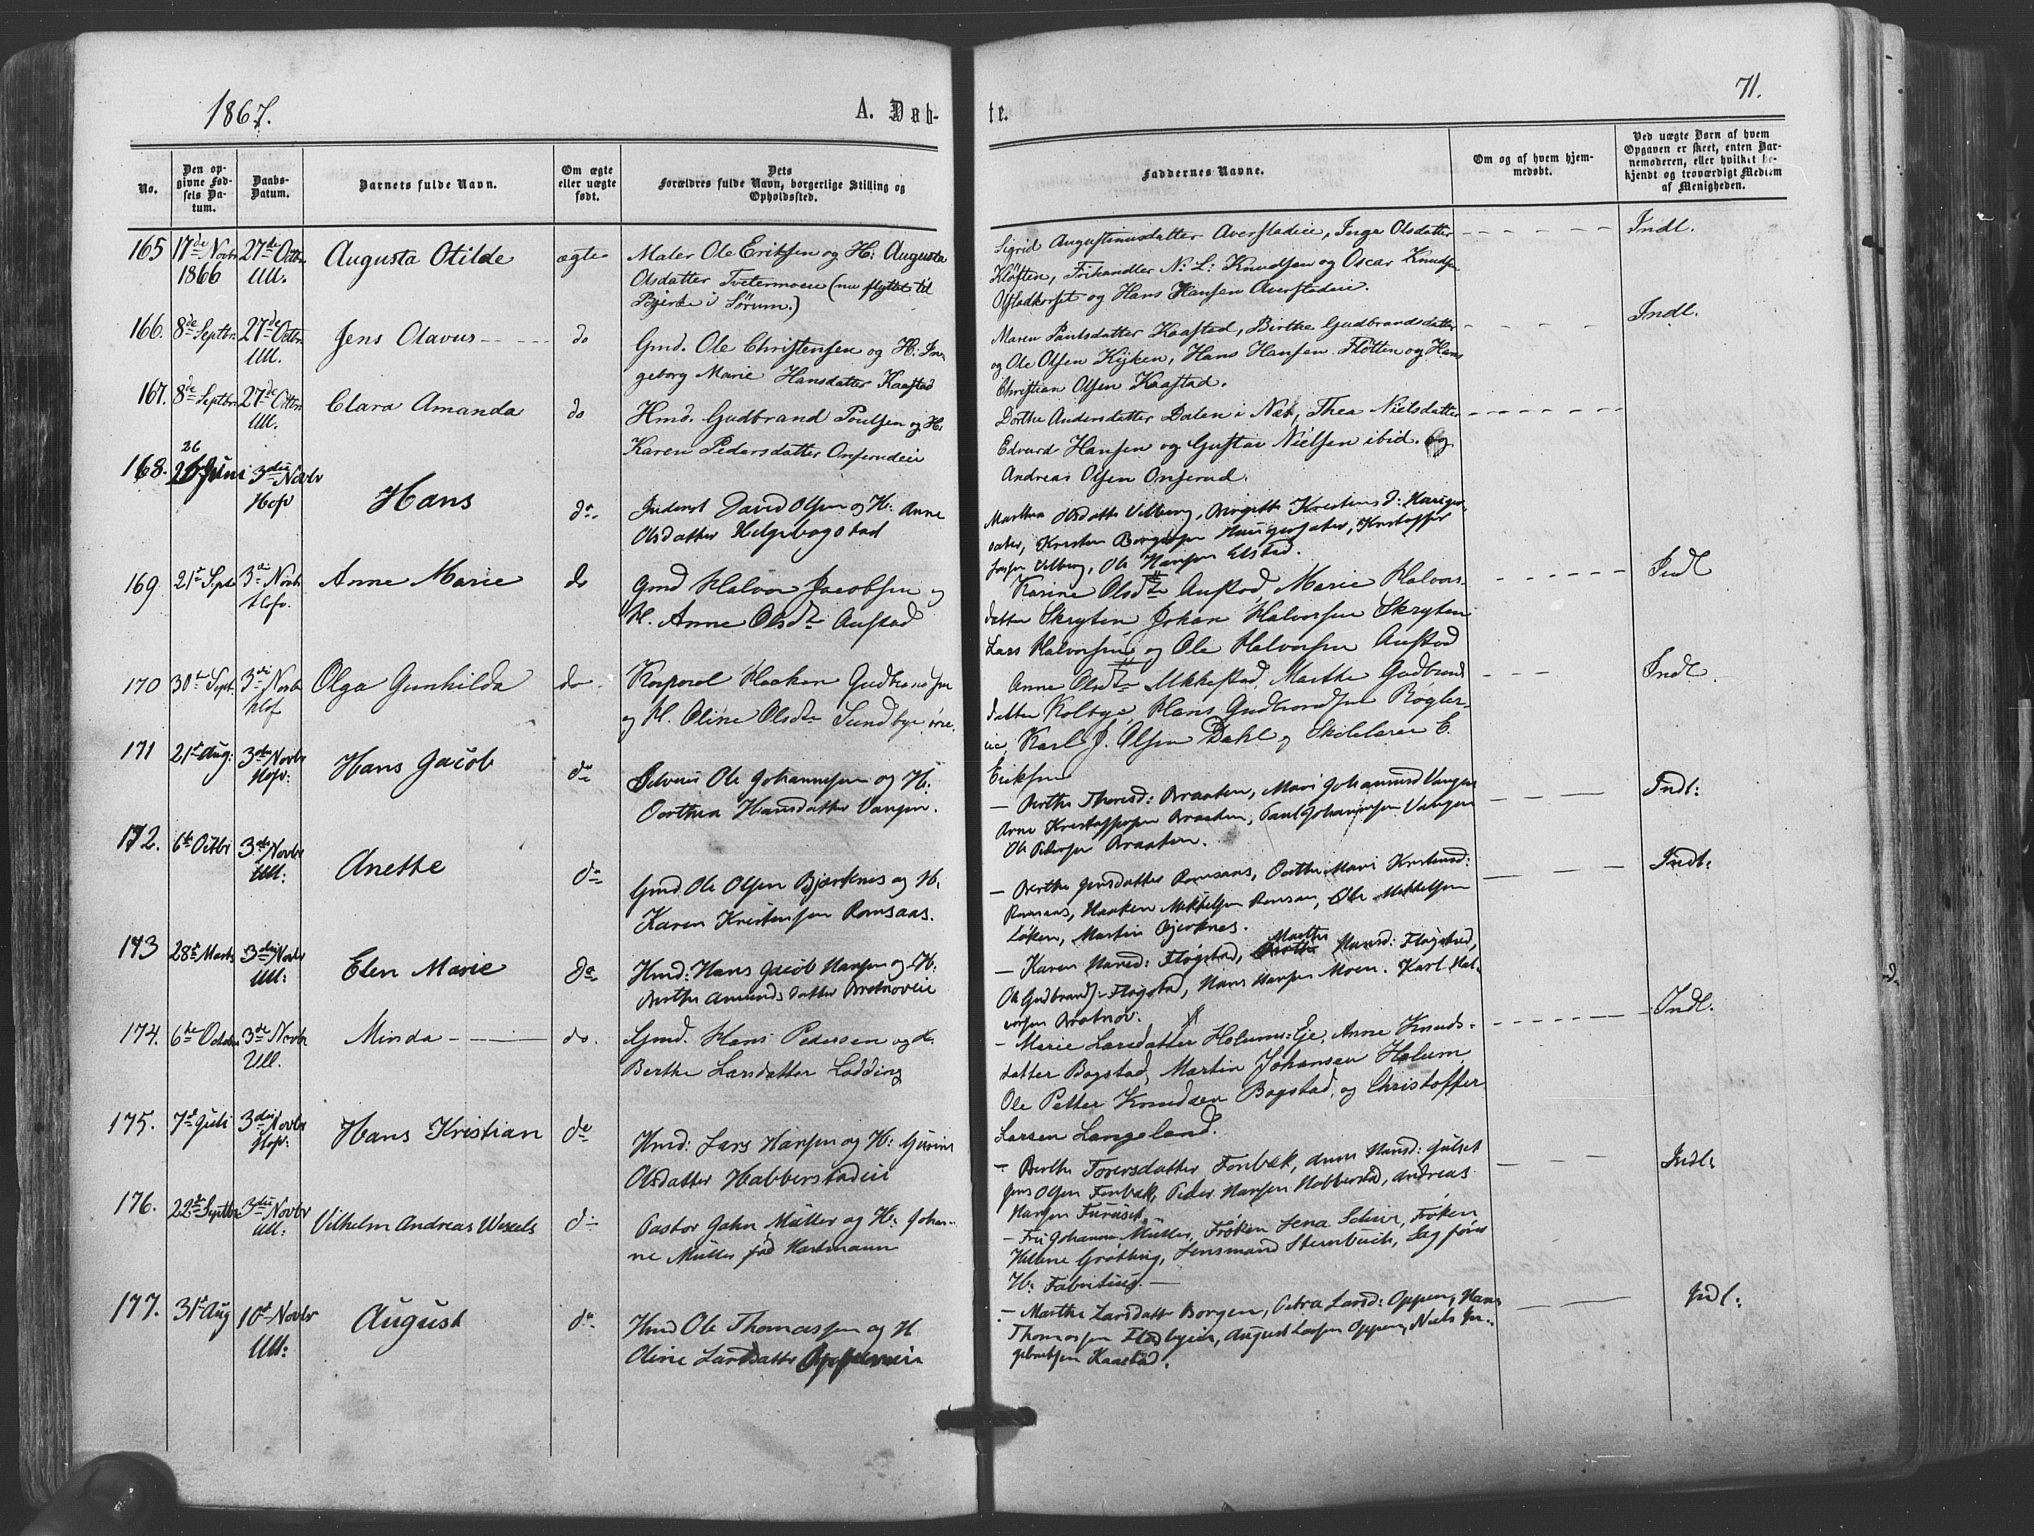 1867.
A. Døb-
te.
71.
No.
Den op-
givne Fød-
sels Da-
tum.
Daabs-
Datum.
Barnets fulde Navn.
Om ægte
eller uægte
født.
Dets
Forældres fulde Navn, borgerlige Stilling og
Opholdssted.
Faddernes Navne.
Om og af hvem hjem-
medøbt.
Ved uægte Børn af hvem
Opgaven er skeet, enten Bar-
nemoderen, eller hvilket be-
kjendt og troværdigt Medlem
af Menigheden.
165
17de Novbr
1866
27de Octbr
Ull.
Augusta Otilde
ægte
Maler Ole Eriksen og H: Augusta
Olsdatter Tvetermoeie (nu flyttet til
Bjerke i Sørum.)
Sigrid Augustinusdatter Averstadeie, Inga Olsdatter
Kløften, Frihandler N: L: Knudsen og Oscar Knudsen
og Hans Hansen Averstadeie.
Indl.
166.
8de Septbr
27de Octbr
Ull.
Jens Olavus
do
Gmd. Ole Christensen og H: In-
geborg Marie Hansdatter Kaastad
Maren Paulsdatter Kaastad, Birthe Gudbrandsdatter
og Ole Olsen Kijken, Hans Hansen Fløtten og Hans
Christian Olsen Kaastad.
Indl.
167.
8de Septbr
27de Octbr
Ull.
Clara Amanda
do
Hmd. Gudbrand Poulsen og H:
Karen Pedersdatter Onsrudeie
Dorthe Andersdatter Dalen i Næs, Thea Nielsdatter
Edvard Hansen og Gustav Nielsen ibid. og
Andreas Olsen Onsrud.
168.
26
Juni
3die Novbr
Hofv
Hans
do
Inderst David Olsen og H: Anne
Olsdatter Helgebogstad
Marthea Olsdatter Vilberg, Birgitte Kristensd: Hauger-
sæter, Kristen Haugersæter, Kristoffer
Vilberg, Ole Hansen Elstad.
169
21de Sept
3die Novb
Hofv.
Anne Marie
do
Gmd Halvor Jacobsen og
H. Anne Olsdtr Austad
Karine Olsdtr Austad, Marie Halvors-
datter Skryten Johan Halvorsen Skryten
Lars Halvorsen og Ole Halvorsen Austad
Indl
170
30te Sept.
3die Novb
Hof
Olga Gunhilda
do
Korporal Haaken Gudbrandsen
og H. Oline Olsdtr Sundbye øvre
Anne Olsdtr Mkkestad, Marthe Gudbrands
datter Kolbye, Hans Gudbrandsen Rogler-
eie, Karl J. Olsen Dahl og Skolelærer E.
Eriksen
Indl.
171
21de Aug:
3die Novbr
Hofv:
Hans Jacob
do
Selveier Ole Johannesen og H:
Dorthea Hansdatter Vangen.
– Berthe Thoresd: Braaten, Mari Johannesd Vangen
Arne Kristoffersen Braaten, Paul Johannesen Vangen
Ole Pedersen Braaten.
Indl:
172.
6te Octbr
3die Novbr
Ull:
Anette
do
Gmd. Ole Olsen Bjærknes og H.
Karen Kristensen Romsaas.
– Berthe Jensdatter Romsaas, Dorthe Mari Kristensd:
Romsaas, Haaken Mikkelsen Romsaas, Ole Mikkelsen
Løken, Martin Bjerknes.
Indl:
173
28de Marts
3die Novbr
Ull:
Elen Marie
do
Hmd: Hans Jacob Hansen og H:
Berthe Amundsdatter Brotnoveie
– Karen Hansd: Fløgstad, Marthe Hansd: Fløgstad,
Ole Gudbrands: Fløgstad, Hans Hansen Moen. Karl Hal-
vorsen Brotnov.
174.
6te October
3die Novbr
Ull.
Minda
do.
Gmd. Hans Pedersen og H.
Berthe Larsdatter Lodding
– Marie Larsdatter Holums: Eje, Anne Knuds-
datter Bogstad, Martin Johansen Holum
Ole Petter Knudsen Bogstad, og Christoffer
Larsen Langeland.
Indl.
175.
7de Juli
3die Novbr
Hofv:
Hans Kristian
do
Hmd: Lars Hansen og H: Gurine
Olsdatter Habberstadeie
– Berthe Torersdatter Fonbæk, Anne Hansd: Julset
Jens Olsen Fonbæk, Peder Hansen Habberstad, Andreas
Hansen Furuset.
Indl:
176.
22de Septbr
3die Novbr
Ull:
Vilhelm Andreas Wexels
do
Pastor Jahn Müller og H: Johan-
ne Müller fød Hartmann
– Fru Johanne Müller, Frøken Jena Scheer, Frøken
Helene Grøtting, Lensmand Sternbuch, Sagfører
H: Fabritius. –
177.
31te Aug
10de Novbr
Ull:
August
do
Hmd Ole Thomassen og H
Oline Larsdatter Oppeneie
– Marthe Larsdatter Borgen, Petra Larsd: Oppen, Hans
Thomassen Fladbyeie, August Larsen Oppen, Niels In-
gebretsen Kaastad.
Indl: